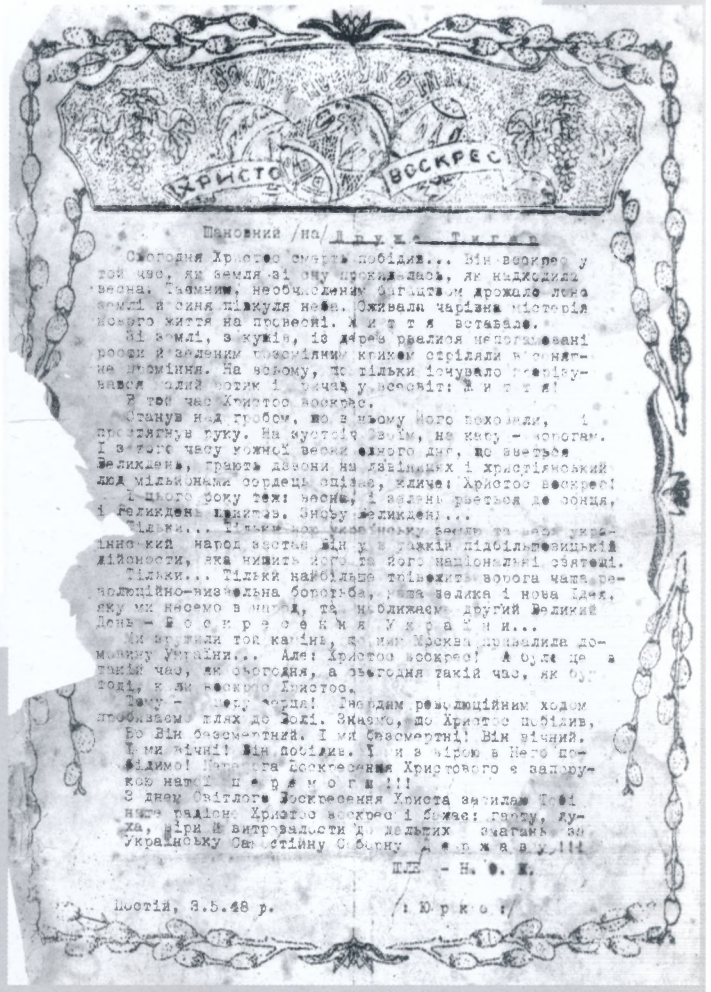 ХРИСТОС ВОСКРЕС
Шановний /на/ Друже Тигор
Сьогодня Христос смерть побідив... Він воскрес у
той час, як земля зі сну прокидалась, як надходила
весна. Таємним, необчисленим багацтвом дрожало лоно
землі й синя півкуля неба. Оживали чарівна містерія
нового життя на провесні. Життя вставало.
Зі землі, з кущів, із дерев рвалися
рости й зеленим криком стріляли
проміння. На всьому, що тільки існувало
малий ротик і кричав у всесвіт: Життя!
В той час Христос воскрес.
Станув над гробом, що в ньому його поховали, і
простягнув руку. На зустріч Своїм, на кару - ворогам.
І з того часу кожної весни одного дня, що зветься
Великдень, грають дзвони на дзвіницях і християнський
люд мільйонами сердець співає, кличе: Христос воскрес!
І цього року теж: весна, і зелень рветься до сонця,
і Великдень прийшов. Знову Великдень...
Тільки... Тільки цю українську весну та укра-
їнський народ застає Він у важкій підбільшовицькій
дійсности, яка нищить його та його національні святощі.
Тільки... Тільки найбільше трівожить ворога наша ре-
волюційно-визвольна боротьба, наша велика і нова Ідея,
яку ми несемо в народ, та наближаєм другий Великий
День - Воскресення України...
Ми зрушили той камінь, що ним Москва привалила до-
мовину України... Але: Христос воскрес! А було це в
такій час, як сьогодня, а сьогодня такій час, як був
тоді, коли воскрес Христос.
Тому - вгору серця! Твердим революційним ходом
пробиваєм шлях до Волі. Знаємо, що Христос побідив,
Бо Він безсмертний. І ми безсмертні! Він вічний.
І ми вічні! Він побідив. І ми з вірою в Него по-
бідимо! Воскресення Христового є запору-
кою нашої перемоги!!!
З днем Світлого Воскресення Христа засилаю Тобі
наше радісне Христос воскрес і бажаю: гарту, ду-
ха, віри й витровалости до дальших змагань за
Українську Самостійну Соборну Державу!!!
Постій, 3.5.48 р. /:Юрко:/